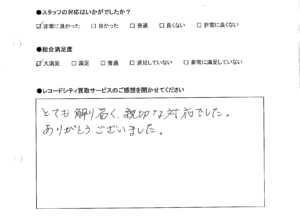 ●スタッフの対応はいかがでしたか？
☑ 非常に良かった □ 良かった □ 普通 □ 良くない □ 非常に良くない
●総合満足度
☑ 大満足 □ 満足 □ 普通 □ 満足していない □ 非常に満足していない
●レコードシティ買取サービスのご感想を聞かせてください
とても解り易く、親切な対応でした。
ありがとうございました。